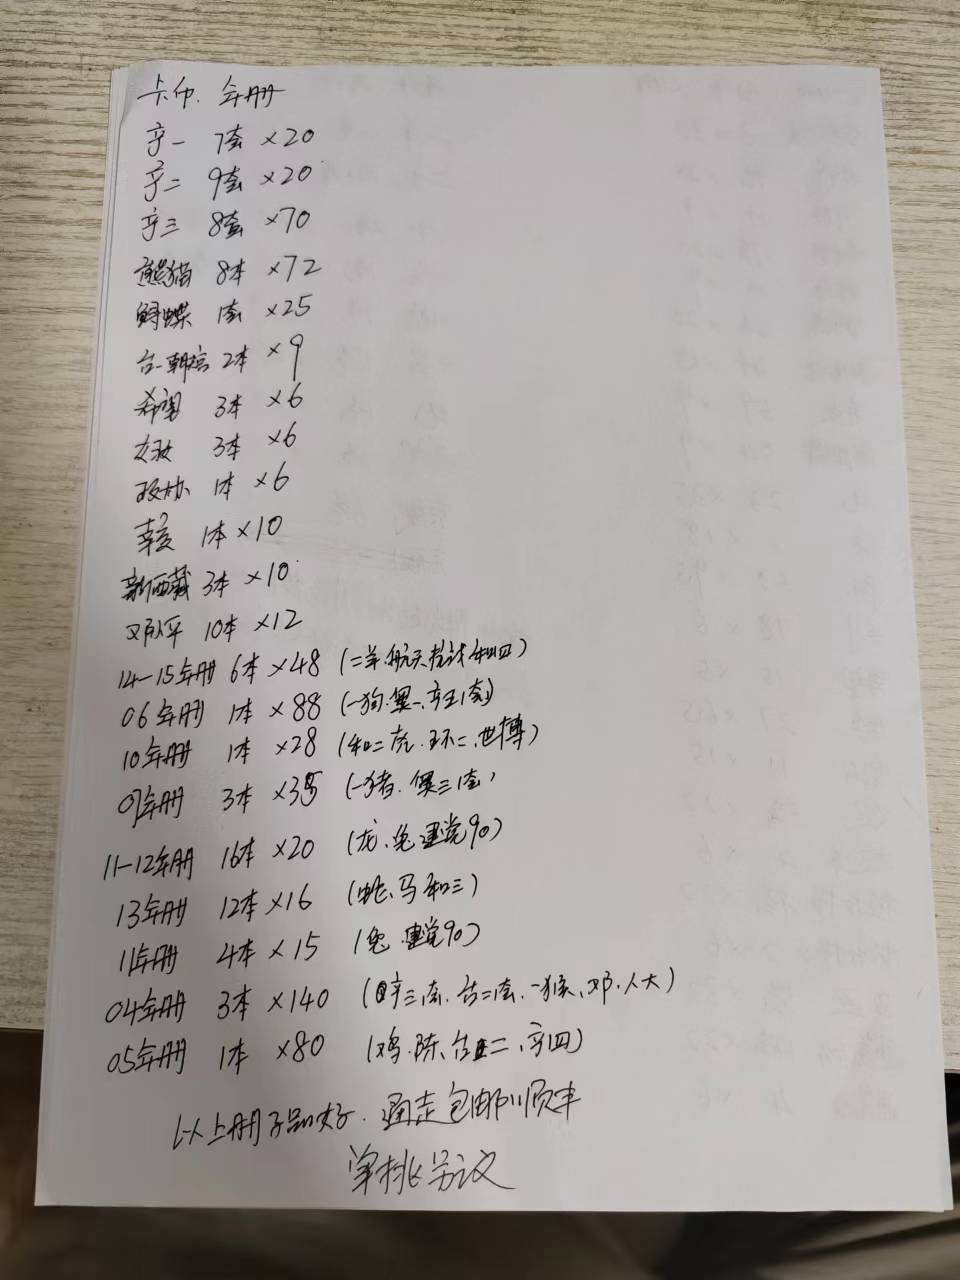 卡币. 年册
字一 7套 ×20
字二 9套 ×20
字三 8套 ×70
熊猫 8本 ×72
蝴蝶 1套 ×25
台.朝宫 2本 ×9
希望 3本 ×6
3本 ×6
政协 1本 ×6
1本 ×10
新西藏 3本 ×10
邓小平 10本 ×12
14-15年册 6本 ×48 (二羊.航天.抗战.和四)
06年册 1本 ×88 (一狗.奥一.字五1套)
10年册 1本 ×28 (和二.虎.环二.世博)
09年册 3本 ×35 (一猪.奥三1套)
11-12年册 16本 ×20 (龙、兔.建党90)
13年册 12本 ×16 (蛇、马.和三)
11年册 4本 ×15 (兔.建党90)
04年册 3本 ×140 (字三1套.台二1套.一猴、邓.人大)
05年册 1本 ×80 (鸡.陈、台二、字四)
以上册子品好.通走包邮顺丰
单挑另议